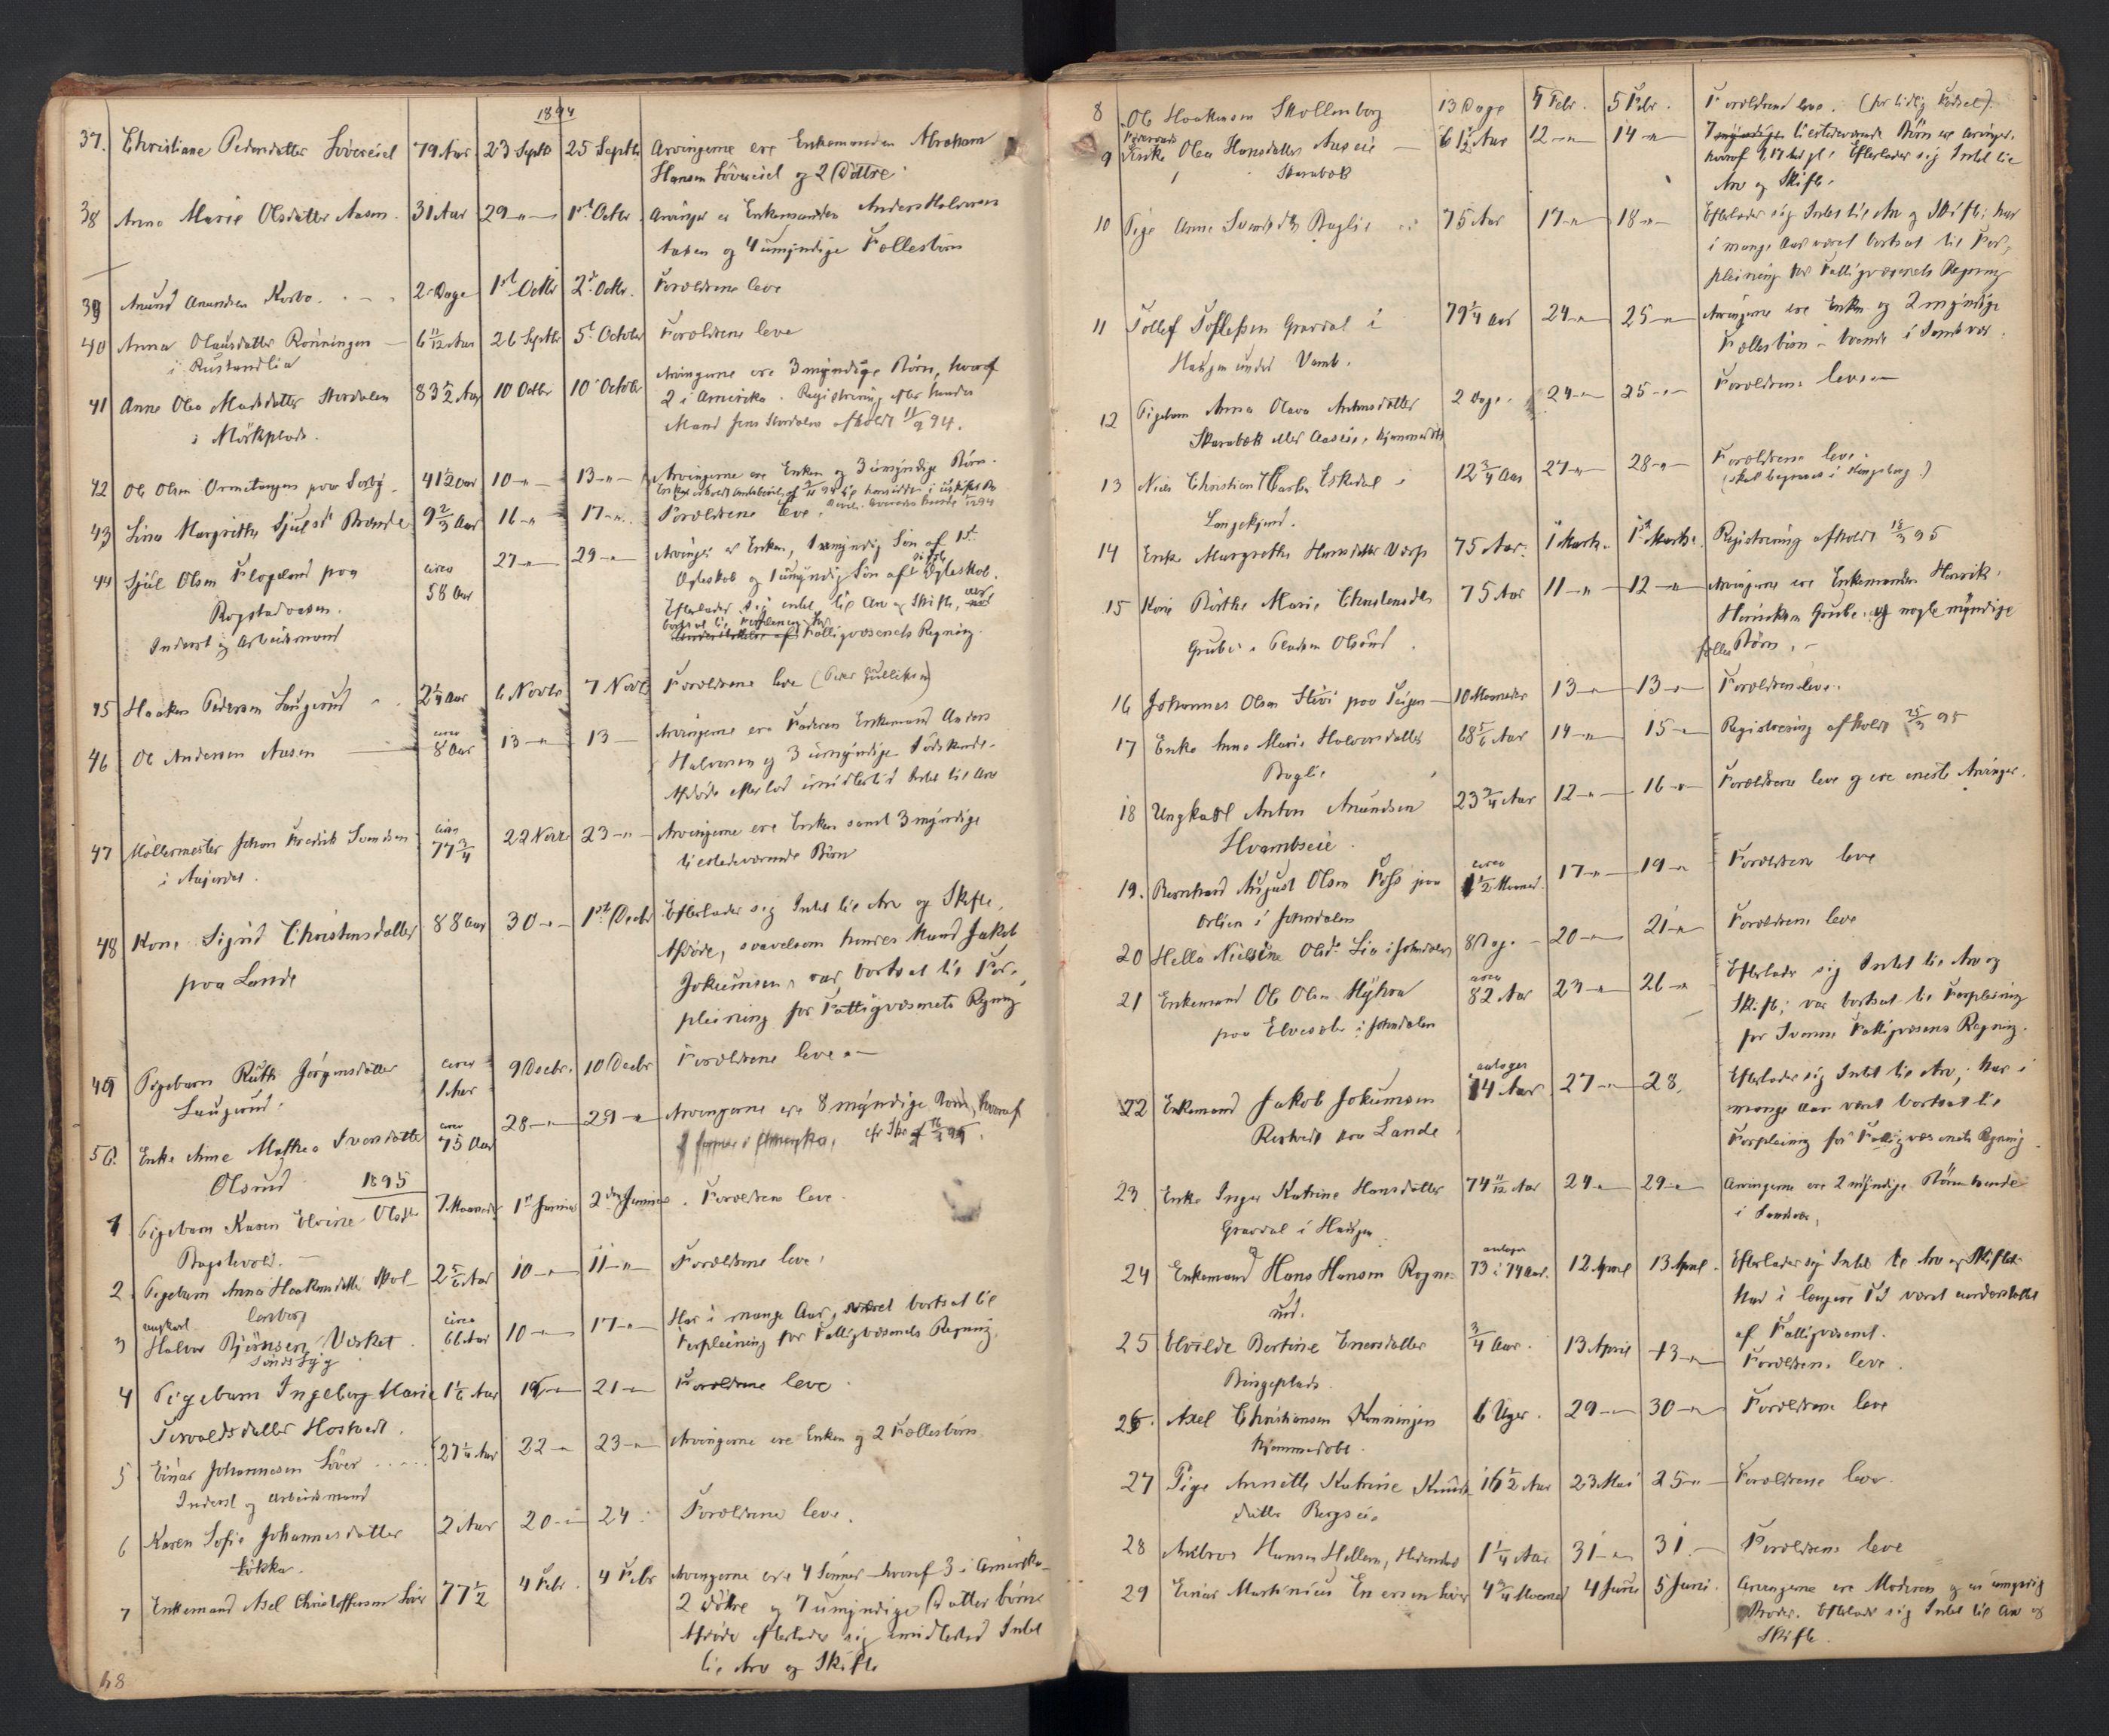 1894
37. Christiane Pedersdatter Sövereiel 79 Aar 23 Septb 25 Septb Arvingerne ere Enkemanden Abraham
Hansen Sövereiel og 2 Döttre
38 Anne Marie Olsdatter Aasen 31 Aar 29 -"- 1ste Octbr Arvinger er Enkemanden Anders Halvorsen
Aasen og 4 umyndige Fællesbörn
39 Anund Anundsen Korbo 2 Dage 1st Octbr 2d Octbr. Forældrene leve
40 Anna Olausdatter Rönningen 6 11/12 Aar 26 Septbr 5t October Forældrene leve
i Rustandlia
41 Anne Olea Madsdatter Stordalen 83 1/2 Aar 10 Octbr 10 Octobr Arvingerne ere 3 myndige Börn, hvoraf
2 i Amerika. Registrering efter hendes
i Mörkplads.
Mand Jens Stordalen afholdt 11/9 94.
42 Ole Olsen Ormetangen paa Sörby 41 1/2 Aar 10 -"- 13 -"- Arvingerne ere Enken og 3 umyndige Börn.
43 Lina Margrethe Sjulsd Brænde 9 2/3 Aar 16 -"- 17 -"- Forældrene leve.
44 Sjul Olsen Flogeland paa circa 58 Aar 27 -"- 29 -"- Arvinger er Enken, 1 myndig Sön af 1st
Ægteskab og 1 umyndig Sön af sidste Ægteskab.
Rogstadvasen.
Efterlader sig intet til Arv og Skifte, var
Inderst og Arbeidsmand
bortsat til Forpleining for Fattigvæsenets Regning.
45 Haaken Pedersen Laugerud 2 1/4 Aar 6 Novbr 7 Novb Forældrene leve (Peder Gulliksen)
46 Ole Andersen Aasen circa 8 Aar 13 -"- 13 - Arvingerne ere Faderen Enkemand Anders
Halvorsen og 3 umyndige Södskende.
Afdöde efterlod imidlertid Intet til Arv
47 Möllermester Johan Fredrik Svendsen circa 77 3/4 22 Novr 23 -"- Arvingerne ere Enken samt 3 myndige
i
tilstedeværende Börn
48 Kone Sigrid Christensdatter 88 Aar 30 -"- 1ste Decbr Efterlader sig Intet til Arv og Skifte.
Afdöde, saavelsom hendes Mand Jakob
paa Lande
Jokumsen, var bortsat til For-
pleining for Fattigvæsenets Regning
49 Pigebarn Ruth Jörgensdatter circa 1 Aar 9 Decbr. 10 Decbr Forældrene leve
Laugerud.
50. Enke Anne Mathea Iversdatter circa 75 Aar 28 -"- 29 -"- Arvingerne ere 8 myndige Börn, hvoraf
Olsrud
1895
1 Pigebarn Karen Elvine Olsdtr 7 Maaneder 1st Januar 2den Januar Forældrene leve.
Bagstevold.
2 Pigebarn Anna Haakensdatter Skol- 2 5/6 Aar 10 -"- 11 -"- Forældrene leve.
lenborg
3 ungkarl Halvor Björnsen Værket circa 66 Aar 10 -"- 17 -"- Har i mange Aar været bortsat til
Sindssyg
Forpleining for Fattigvæsenets Regning.
4 Pigebarn Ingeborg Marie 1 1/6 Aar 21 -"- Forældrene leve
Torvaldsdatter Hostvedt.
5 Einar Johannesen Söver 27 1/4 Aar 22 -"- 23 -"- Arvingerne ere Enken og 2 Fællesbörn
Inderst og Arbeidsmand
6 Karen Sofie Johannesdatter 2 Aar 20 -"- 24 Forældrene leve.
Lökka.
7 Enkemand Axel Christoffersen Söver 77 1/2 4 Febr. 4 Febr Arvingerne ere 4 Sönner hvoraf 3 i Amerika
2 Döttre og 7 umyndige Datterbörn
Afdöde efterlader sig imidlertid Intet
til Arv og Skifte
48
8 Ole Haakensen Skollenborg 13 Dage 4 Febr. 5 Febr. Forældrene leve. (for tidlig Födsel).
9 Enke Olea Hansdatter Aaseie 61 1/2 Aar 12 -"- 14 -"- 7 myndige tilstedeværende Börn ere Arvinger,
Skarabæk
Efterlader sig Intet til
Arv og Skifte.
10 Pige Anne Svendsdtr Baglie 75 Aar 17 -"- 18 -"- Efterlader sig Intet til Arv og Skifte; har
i mange Aar været bortsat til For-
pleining for Fattigvæsenets Regning
11 Tollef Tollefsen Gravdal i 79 1/4 Aar 24 -"- 25 -"- Arvingerne ere Enken og 2 myndige
Haugen under Vamb.
Fællesbörn - boende i Sandsvær.
12 Pigebarn Anna Olava Antonsdatter 2 Dage. 24 -"- 25 -"- Forældrene leve
Skarabæk eller Aaseie, hjemmedöbt
13 Niels Christian Eskedal 12 3/4 Aar 27 -"- 28 -"- Forældrene leve.
Langekjend.
(skal begraves i Kongsberg.)
14 Enke Margrethe Hansdatter 75 Aar. 1 Marts. 1ste Marts. Registrering afholdt 18/3 95
15 Kone Börthe Marie Christensdtr 75 Aar 11 -"- 12 -"- Arvingerne ere Enkemanden Henrik
Henriksen Grube og nogle myndige
Grube
fælles Börn.
16 Johannes Olsen Stevi paa Teigen 10 Maaneder 13 -"- 13 -"- Forældrene leve.
17 Enke Anne Marie Halvorsdatter 68 5/6 Aar 14 -"- 15 -"- Registrering afholdt 25/3 95
Baglie
18 Ungkarl Anton Anundsen 23 3/4 Aar 12 -"- 16 -"- Forældrene leve og ere eneste Arvinger.
Hvambseie
19. Bernhard August Olsen Foss paa circa 1 1/2 Maaned. 17 -"- 19 -"- Forældrene leve
Orlien i Jondalen
20 Hella Nielsine Olsdr Lia i Jondalen 8 Dage 20 -"- 21 -"- Forældrene leve
21 Enkemand Ole Olsen Myhra circa 82 Aar 23 -"- 26 -"- Efterlader sig Intet til Arv og
Skifte; var bortsat til Forpleining
paa Elvesæter i Jondalen
for Fattigvæsens Regning.
22 Enkemand Jakob Jokumsen antagen 74 Aar 27 -"- 28. Efterlader sig Intet til Arv; har i
mange Aar været bortsat til
paa Lande
Forpleining for Fattigvæsenets Regning
23 Enke Inger Katrine Hansdatter 74 11/12 Aar 24 -"- 29 -"- Arvingerne ere 2 myndige Börn boende
Gravdal i Haugen
i Sandsvær.
24 Enkemand Hans Hansen Rogne- antagen 73 à 74 Aar. 12 April 13 April. Efterlader sig Intet til Arv og Skifte
rud.
Har i længere Tid været understöttet
af Fattigvæsenet.
25 Elvilde Bertine Enersdatter 3/4 Aar. 13 April 13 -"- Forældrene leve.
Bingeplads
26. Axel Christiansen Rönningen 6 Uger. 29 -"- 30 -"- Forældrene leve
hjemmedöbt.
27 Pige Annette Katrine Knuds- 16 1/2 Aar 23 Mai 25 -"- Forældrene leve.
datter Bergseie
28 Ambros Hansen Hellem, 1 1/4 Aar 31 -"- 31 - Forældrene leve
29 Einar Martinius Enersen Söver 4 3/4 Maaned 4 Juni 5 Juni. Arvingerne ere Moderen og en umyndig
Broder. Efterlader sig Intet til Arv og
Skifte.